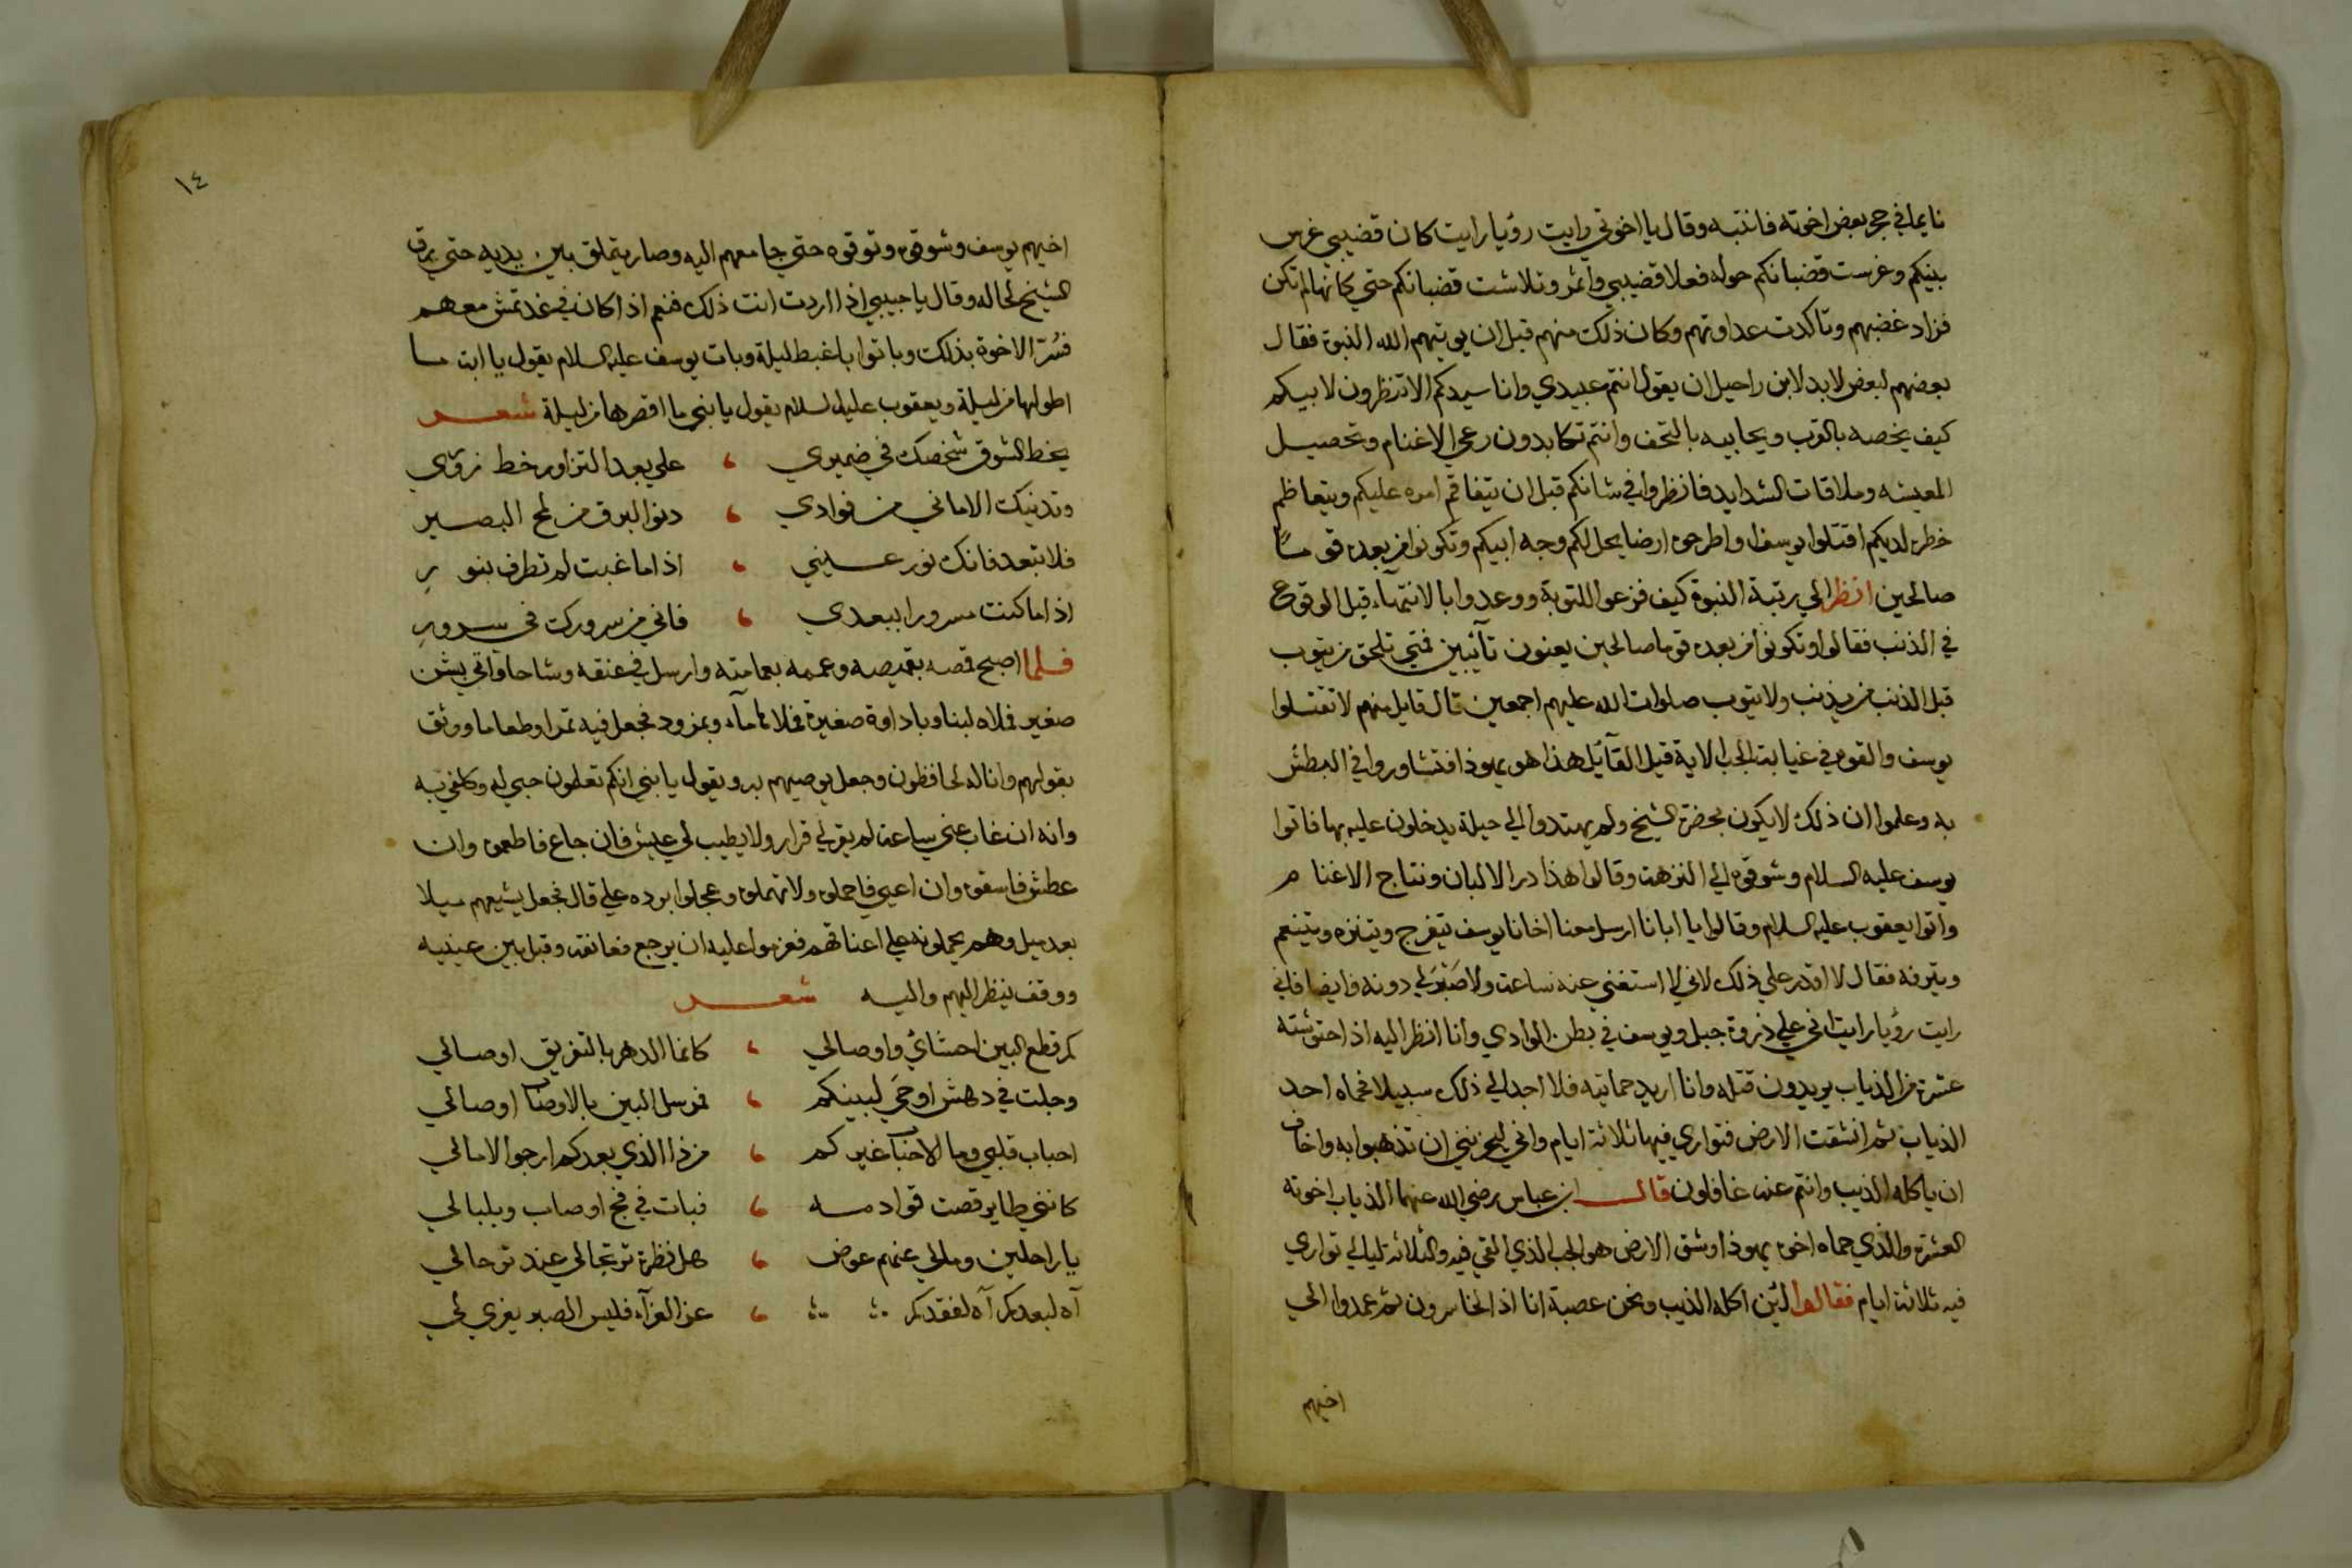 نايما في حجر بعض اخوته فانتبه وقال يا اخوتي رايت رؤيا رايت كان قضيبي غرس
بينكم وغرست قضبانكم حوله فعلا قضيبي واثمر وتلاشت قضبانكم حتي كانها لم تكن
فزاد غضبهم وتاكدت عداوتهم وكان ذلك منهم قبل ان يوتيهم الله النبوة فقال
بعضهم لبعض لابد لابن راحيل ان يقول انتم عبيدي وانا سيدكم الا تنظرون لابيكم
كيف يخصه بالقرب ويحابيه بالتحف وانتم تكابدون رعي الاغنام وتحصيل
المعيشه وملاقات الشدايد فانظروا في شانكم قبل ان يتفاقم امره عليكم ويتعاظم
خطره لديكم اقتلوا يوسف او اطرحوه ارضا يخل لكم وجه ابيكم وتكونوا من بعده قوماً
صالحين انظر الي رتبة النبوة كيف فزعوا للتوبة ووعدوا بالانتهاء قبل الوقوع
في الذنب فقالوا وتكونوا من بعده قوما صالحين يعنون تآئبين فمتي تلحق من يتوب
قبل الذنب من يذنب ولا يتوب صلوات الله عليهم اجمعين قال قايل منهم لا تقتلوا
يوسف والقوه في غيابة الجب الاية قيل القآئل هذا هو يهوذا فتشاوروا في البطش
به وعلموا ان ذلك لا يكون بحضرة الشيخ ولم يهتدوا الي حيلة يدخلون عليه بها فاتوا
يوسف عليه السلام وشوقوه الي النزهة وقالوا هذا در الالبان ونتاج الاغنام
واتوا يعقوب عليه السلام وقالوا يا ابانا ارسل معنا اخانا يوسف يتفرج ويتنزه ويتنعم
ويترفه فقال لا اقدر علي ذلك لاني لا استغني عنه ساعة ولا صَبْرَ لي دونه وايضا فاني
رايت رؤيا رايت اني علي ذروة جبل ويوسف في بطن الوادي وانا انظر اليه اذ احتوشته
عشرة من الذياب يريدون قتله وانا اريد حمايته فلا اجد الي ذلك سبيلا فحماه احد
الذياب ثم انشقت الارض فتواري فيها ثلاثة ايام واني ليحزنني ان تذهبوا به واخاف
ان ياكله الذيب وانتم عنه غافلون قال ابن عباس رضي الله عنهما الذياب اخوته
العشرة والذي حماه اخوه يهوذا وشق الارض هو الجب الذي القي فيه والثلاثه ليالي تواري
فيه ثلاثة ايام فقالوا لئن اكله الذيب ونحن عصبة انا اذا لخاسرون ثم عمدوا الي
اخيهم
١٤
اخيهم يوسف وشوقوه وتوقوه حتي جا معهم اليه وصار يتملق بين يديه حتي يرق
الشيخ لحاله وقال يا حبيبي اذا اردت انت ذلك فنعم اذا كان في غد تمش معهم
فسُرّ الاخوة بذلك وباتوا باغبط ليلة وبات يوسف عليه السلام يقول يا ابت ما
اطولها من ليلة ويعقوب عليه السلام يقول يا بني ما اقصرها من ليلة شعر
يخط الشوق شخصك في ضميري ، علي بعد التزاور خط زوّي
وتدنيك الاماني من فوادي ، دنو البرق من لمح البصير
فلا تبعد فانك نور عيني ، اذا ما غبت لم تطرف بنور
اذا ما كنت مسرورا ببعدي ، فاني من سرورك في سرور
فلما اصبح قمصه بقميصه وعممه بعمامته وارسل في عنقه وشاحا واتي بشن
صغير فملاه لبنا وباداوة صغيرة فملاها مآء وبمزود فجعل فيه تمرا وطعاما ووثق
بقولهم وانا له لحافظون وجعل يوصيهم به ويقول يا بني انكم تعلمون حبي له وكلفي به
وانه ان غاب عني ساعة لم يقر لي قرار ولا يطيب لي عيش فان جاع فاطعموه وان
عطش فاسقوه وان اعيي فاحملوه ولا تهملوه وعجلوا برده علي قال فجعل يشيعهم ميلا
بعد ميل وهم يحملونه علي اعناقهم فعزموا عليه ان يرجع فعانقه وقبل بين عينيه
ووقف ينظر اليهم واليه شعر
كم قطع البين احشاي واوصالي ، كانما الدهر بالتفريق اوصالي
وحلت في دهش اوحَي لبينكم ، فمرسل البين بالاوصاب اوصالي
احباب قلبي وما الاحباب غيركم ، من ذا الذي بعدكم ارجو الامالي
كانني طاير قصت قوادمه ، فبات في فخ اوصاب وبلبالي
يا راحلين ومالي عنهم عوض ، هل نظرة ترتجالي عند ترحالي
آه لبعدكم آه لفقدكم ، عز العزآء فليس الصبر يغري لي